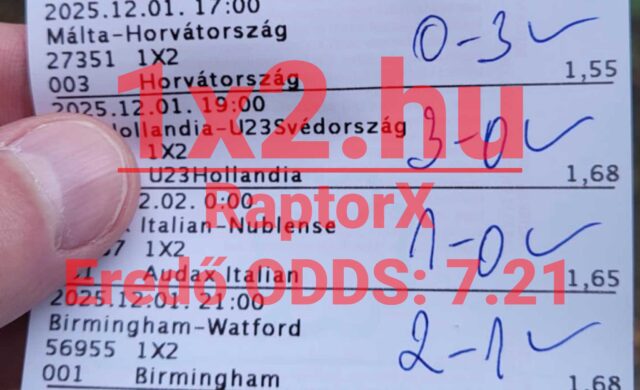 2025.12.01. 17:00
Málta-Horvátország
27351 1X2
003 Horvátország
1,55
0-3 ✓
1x2.hu
2025.12.01. 19:00
Hollandia-U23Svédország
1X2
U23Hollandia
1,68
3-0 ✓
RaptorX
2.02. 0:00
Italian-Nublense
7 1X2
Audax Italian
1,65
1-0 ✓
Eredő ODDS: 7.21
2025.12.01. 21:00
Birmingham-Watford
56955 1X2
001 Birmingham
1,68
2-1 ✓